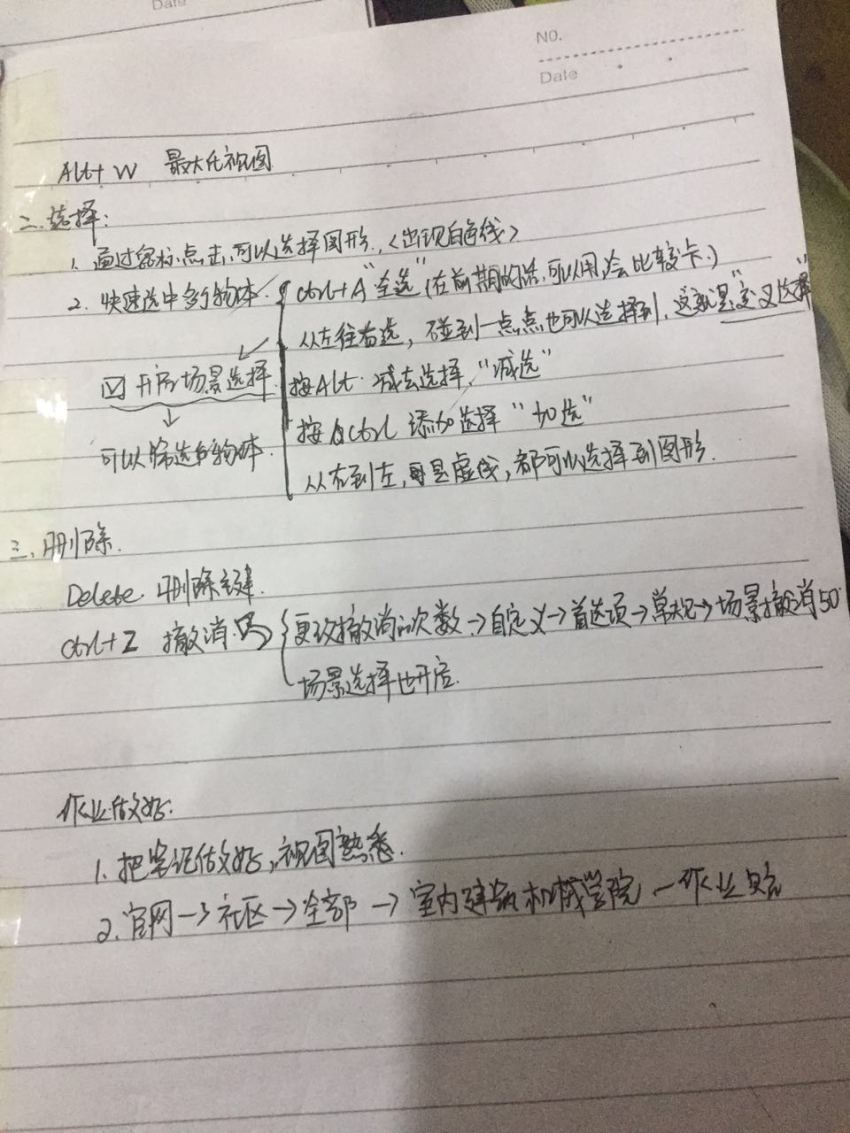 Date
NO.
Date
Alt+W 最大化视图
二.选择:
1. 通过鼠标点击,可以选择图形.<出现白色线>
2. 快速选中多个物体. Ctrl+A "全选"(在前期的话,可以用,会比较卡.)
从左往右选,碰到一点点也可以选择到,这就是"交叉选择"
☑ 开启场景选择. 按Alt 减去选择,"减选"
按Ctrl 添加选择 "加选"
可以筛选的物体. 从右到左,是虚线,都可以选择到图形.
三.删除.
Delete 删除键.
Ctrl+Z 撤消 更改撤消的次数→自定义→首选项→常规→场景撤消50
场景选择也开启.
作业做好.
1. 把笔记做好,视图熟悉.
2. 官网→社区→全部→室内建筑机械学院—作业